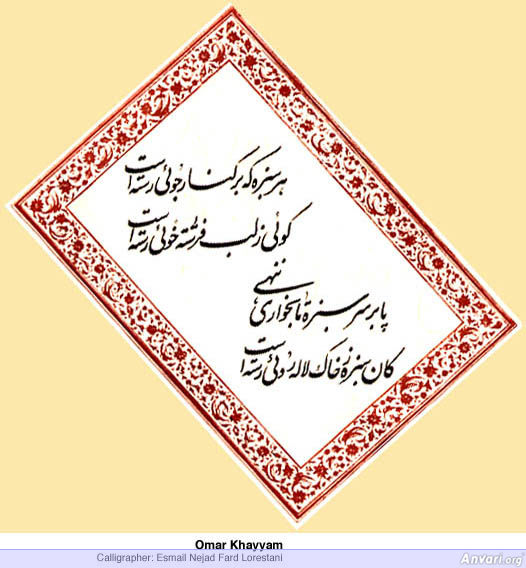 هر سبزه که بر کنار جوئی رسته است
گوئی ز لب فرشته خوئی رسته است
پا بر سر سبزه تا بخواری ننهی
کان سبزه ز خاک لاله روئی رسته است
Omar Khayyam
Calligrapher: Esmail Nejad Fard Lorestani
Anvari.org